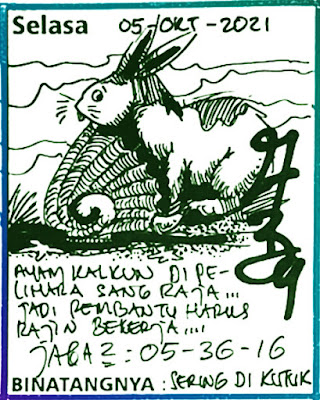 Selasa 05-OKT-2021
AYAM KALKUN DI PE-
LIHARA SANG RAJA...
JADI PEMBANTU HARUS
RAJIN BEKERJA...!
JAGA2 : 05-36-16
BINATANGNYA : SERING DI KUTUK